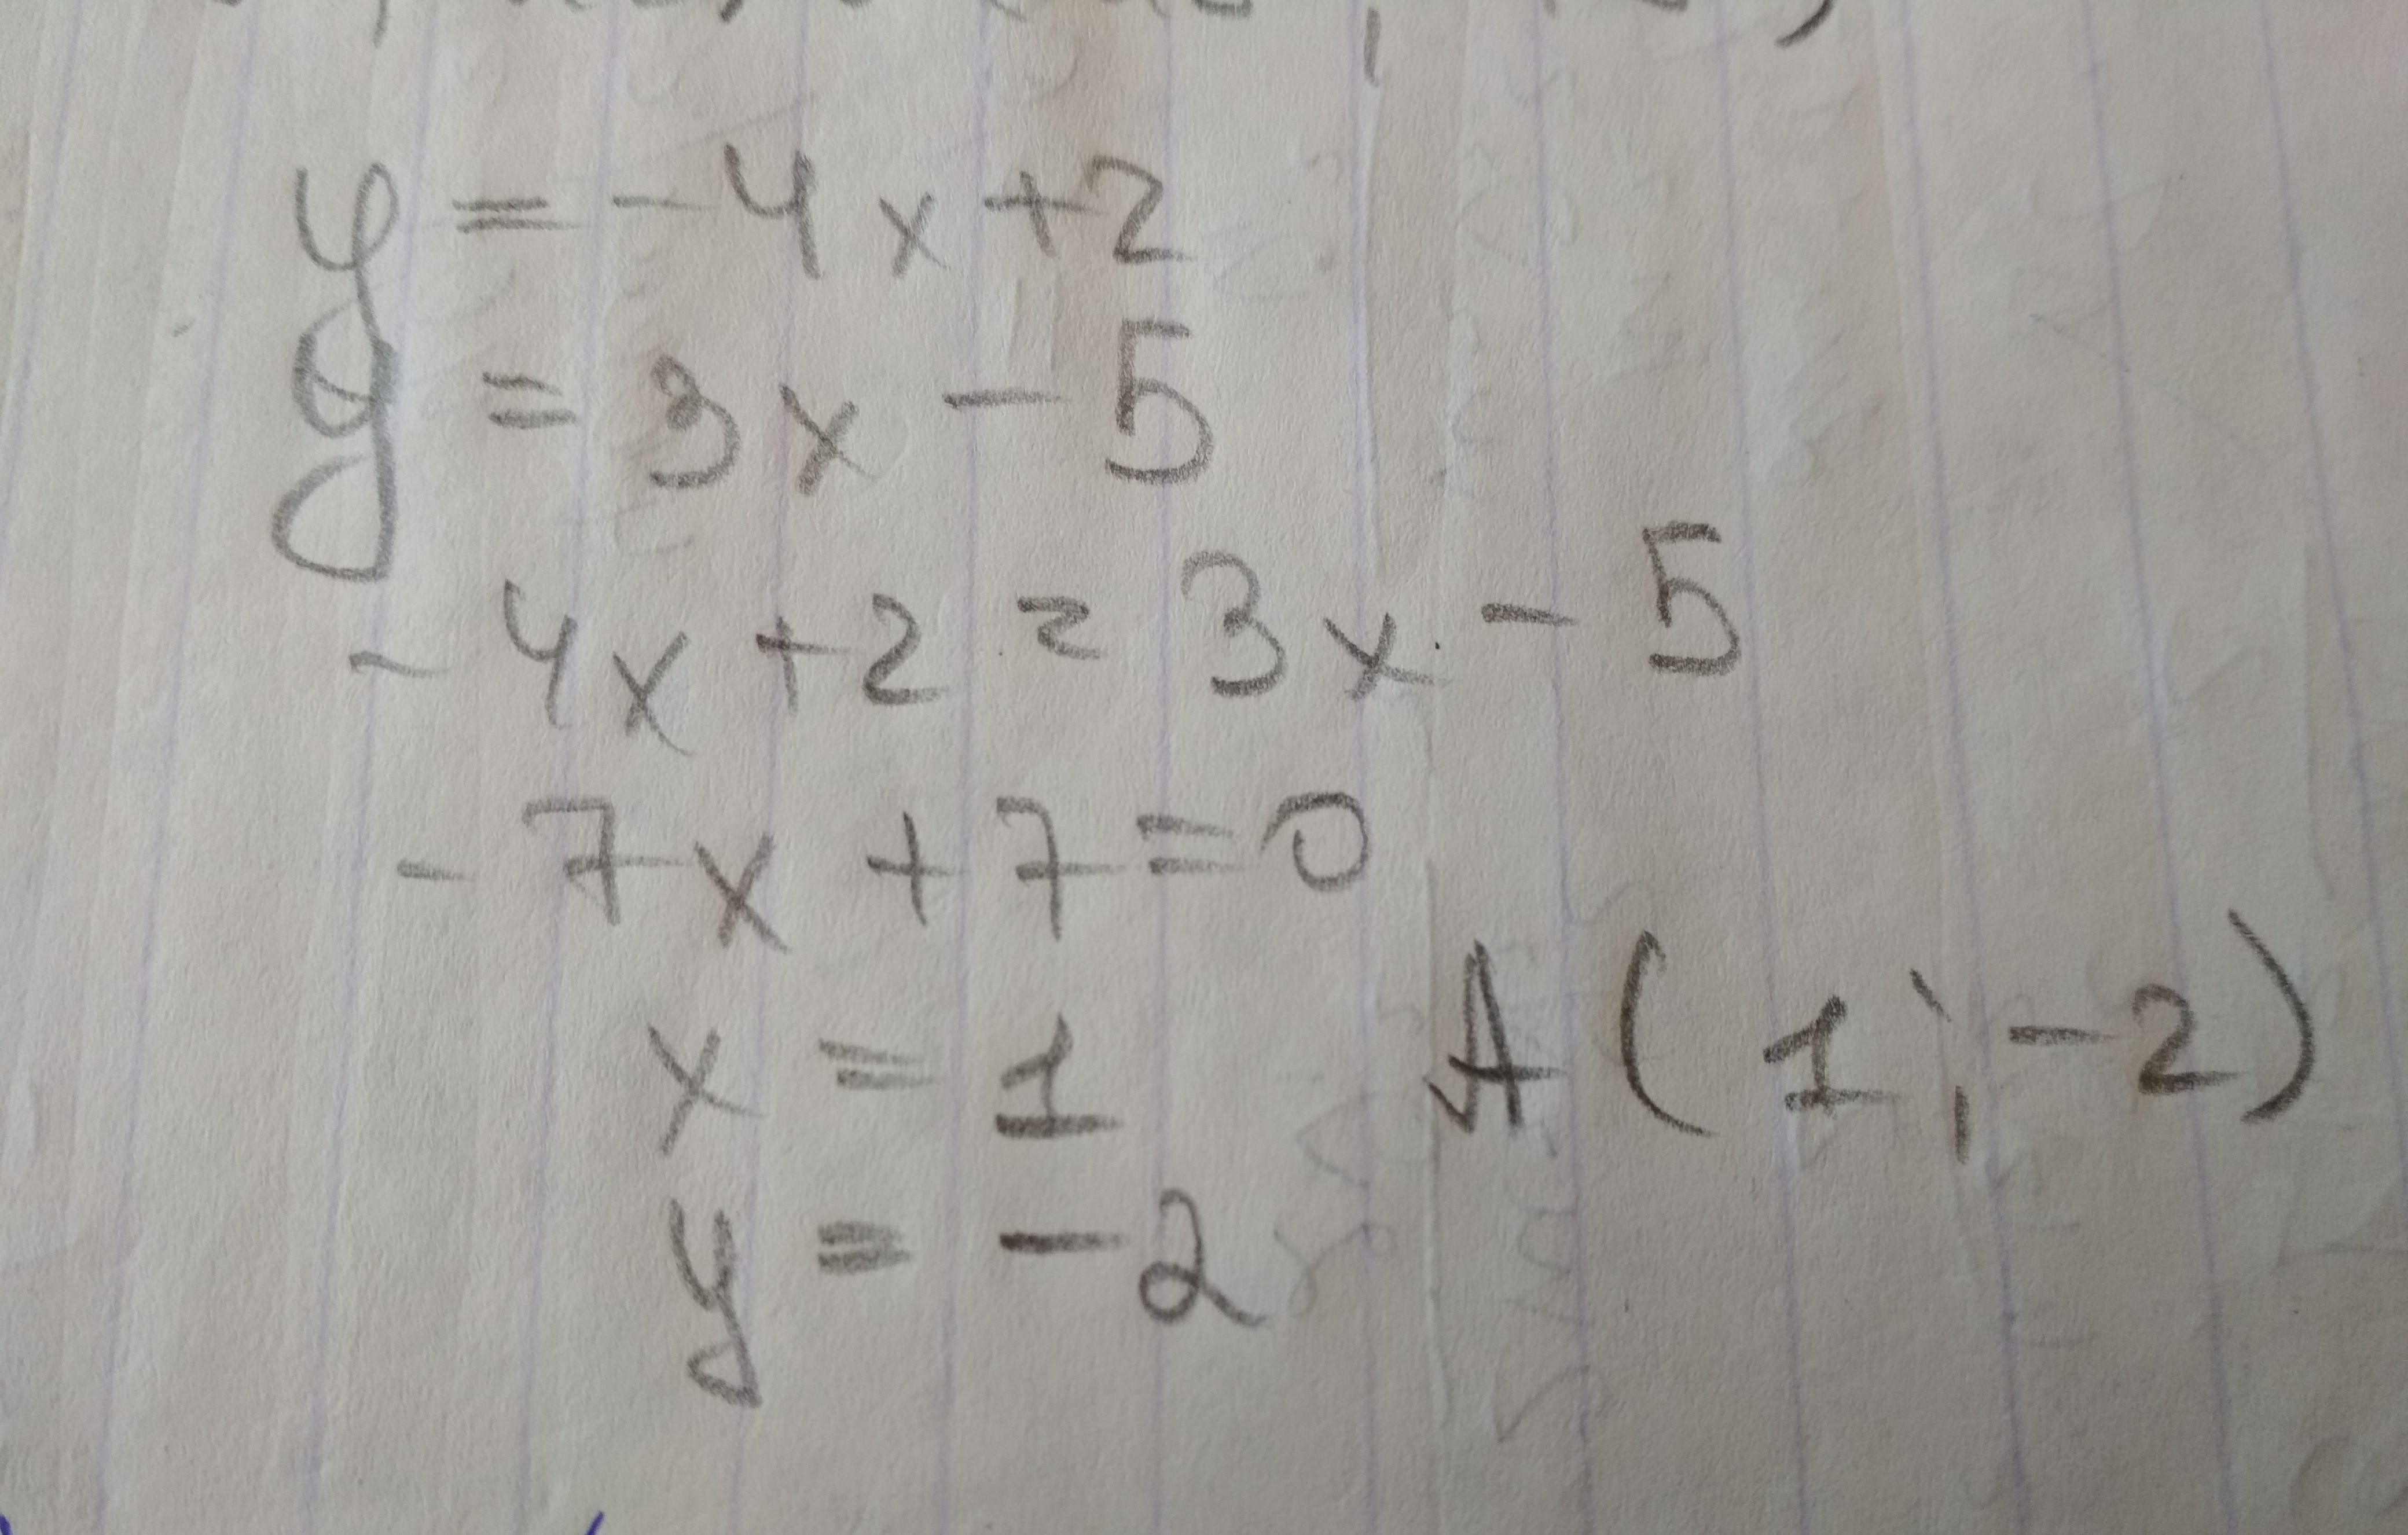 y = -4x +2
y = 3x - 5
- 4x +2 = 3x - 5
- 7x +7 = 0
x = 1
A (1; -2)
y = -2